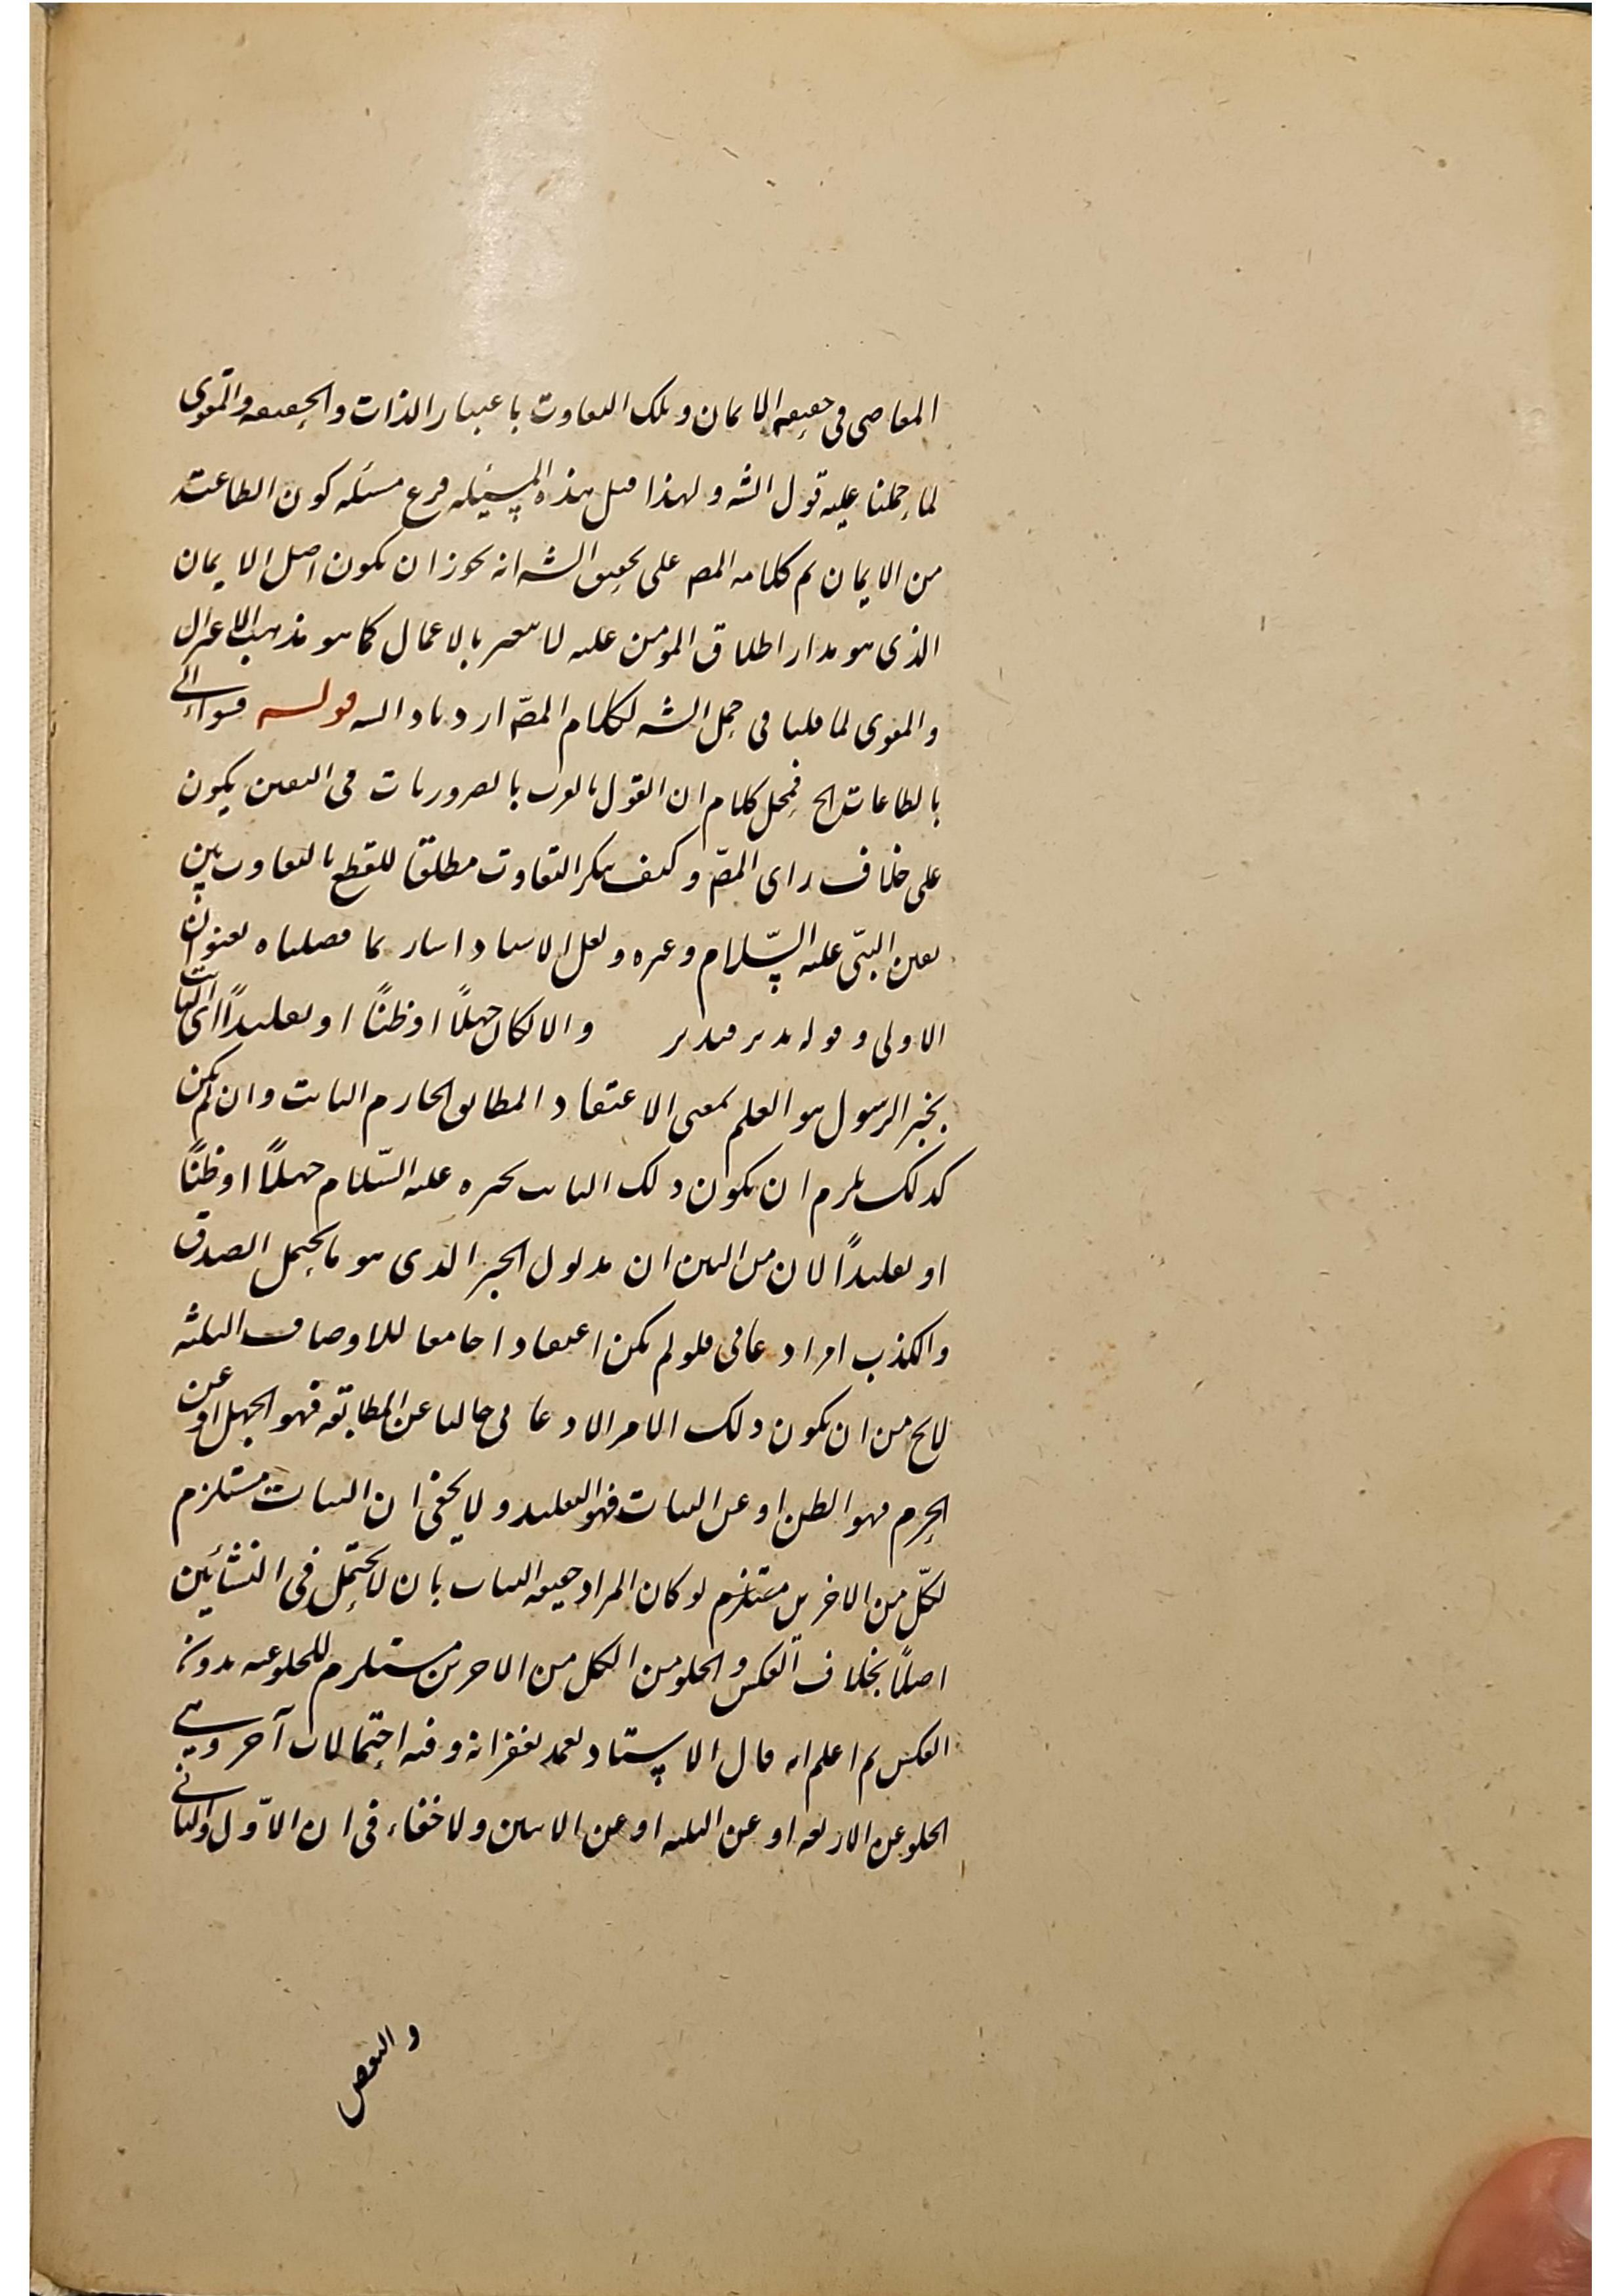 المعاصى فى حقيقه الايمان وتلك التفاوت باعتبار الذات والحقيقه والتقوى
لما حملنا عليه قول الشه ولهذا قيل هذه المسئله فرع مسئله كون الطاعت
من الايمان ثم كلامه المصه على تحقيق الشه انه يجوز ان يكون اصل الايمان
الذى هو مدار اطلاق المؤمن عليه لا يتغير بالاعمال كما هو مذهب الاعتزال
والتقوى لما قلنا فى حمل الشه لكلام المصّ قوله
بالطاعات الخ فمحل كلام ان القول بالضروريات فى اليقين يكون
على خلاف راى المصّ وكيف ينكر التفاوت مطلقا للقطع بالتفاوت بين
يقين النبىّ عليه السّلام وغيره ولعل الاستاد اشار كما فصلناه بعنوان
الاولى وقوله تدبر فتدبر والا لكان جهلاً او ظنًا او تقليداً اى الثابت
بخبر الرسول هو العلم بمعنى الاعتقاد المطابق الجازم الثابت وان لم يكن
كذلك يلزم ان يكون ذلك الثابت بخبره عليه السّلام جهلاً او ظنًا
او تقليداً لان من البين ان مدلول الخبر الذى هو ما يحتمل الصدق
والكذب امر ادعائى فلو لم يكن اعتقادا جامعا للاوصاف الثلثه
لايخ من ان يكون ذلك الامر الادعائى خاليا عن المطابقه فهو الجهل او عن
الجزم فهو الظن او عن الثبات فهو التقليد ولا يخفى ان الثبات مستلزم
لكلّ من الاخرين مستلزم لو كان المراد حقيقه الثبات بان لا يحتمل فى النشأتين
اصلًا بخلاف العكس والخلو من الكل من الاخرين مستلزم للخلو عنه بدون
العكس ثم اعلم انه قال الاستاد تغمد بغفرانه وفيه احتمالات آخر وهى
الخلو عن الاربعه او عن الثلثه او عن الاثنين ولا خفاء فى ان الاوّل والثانى
والنقص